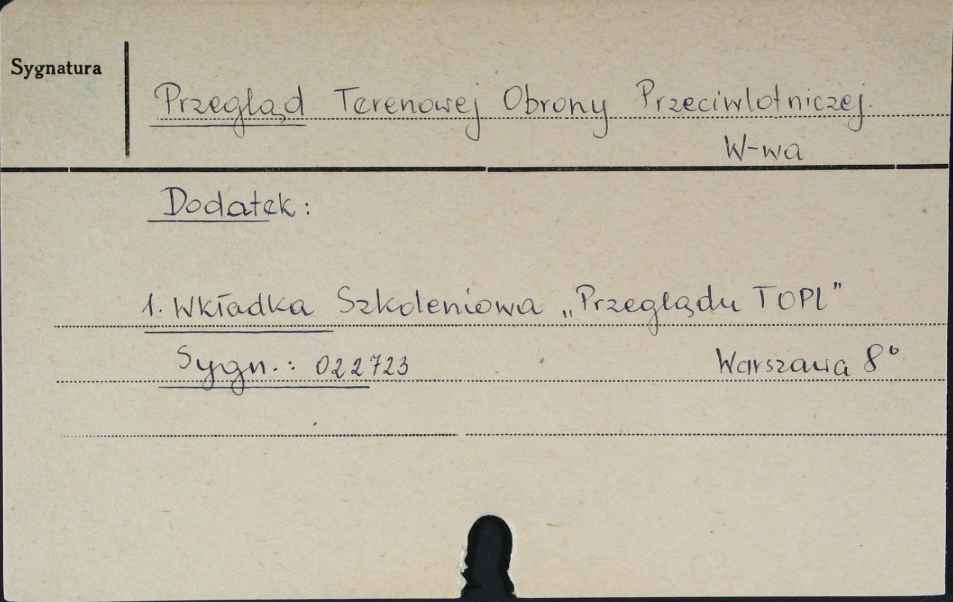 Sygnatura
Przegląd Terenowej Obrony Przeciwlotniczej.
W-wa
Dodatek:
1. Wkładka Szkoleniowa „Przeglądu TOPL"
Sygn.: 022723 Warszawa 8°